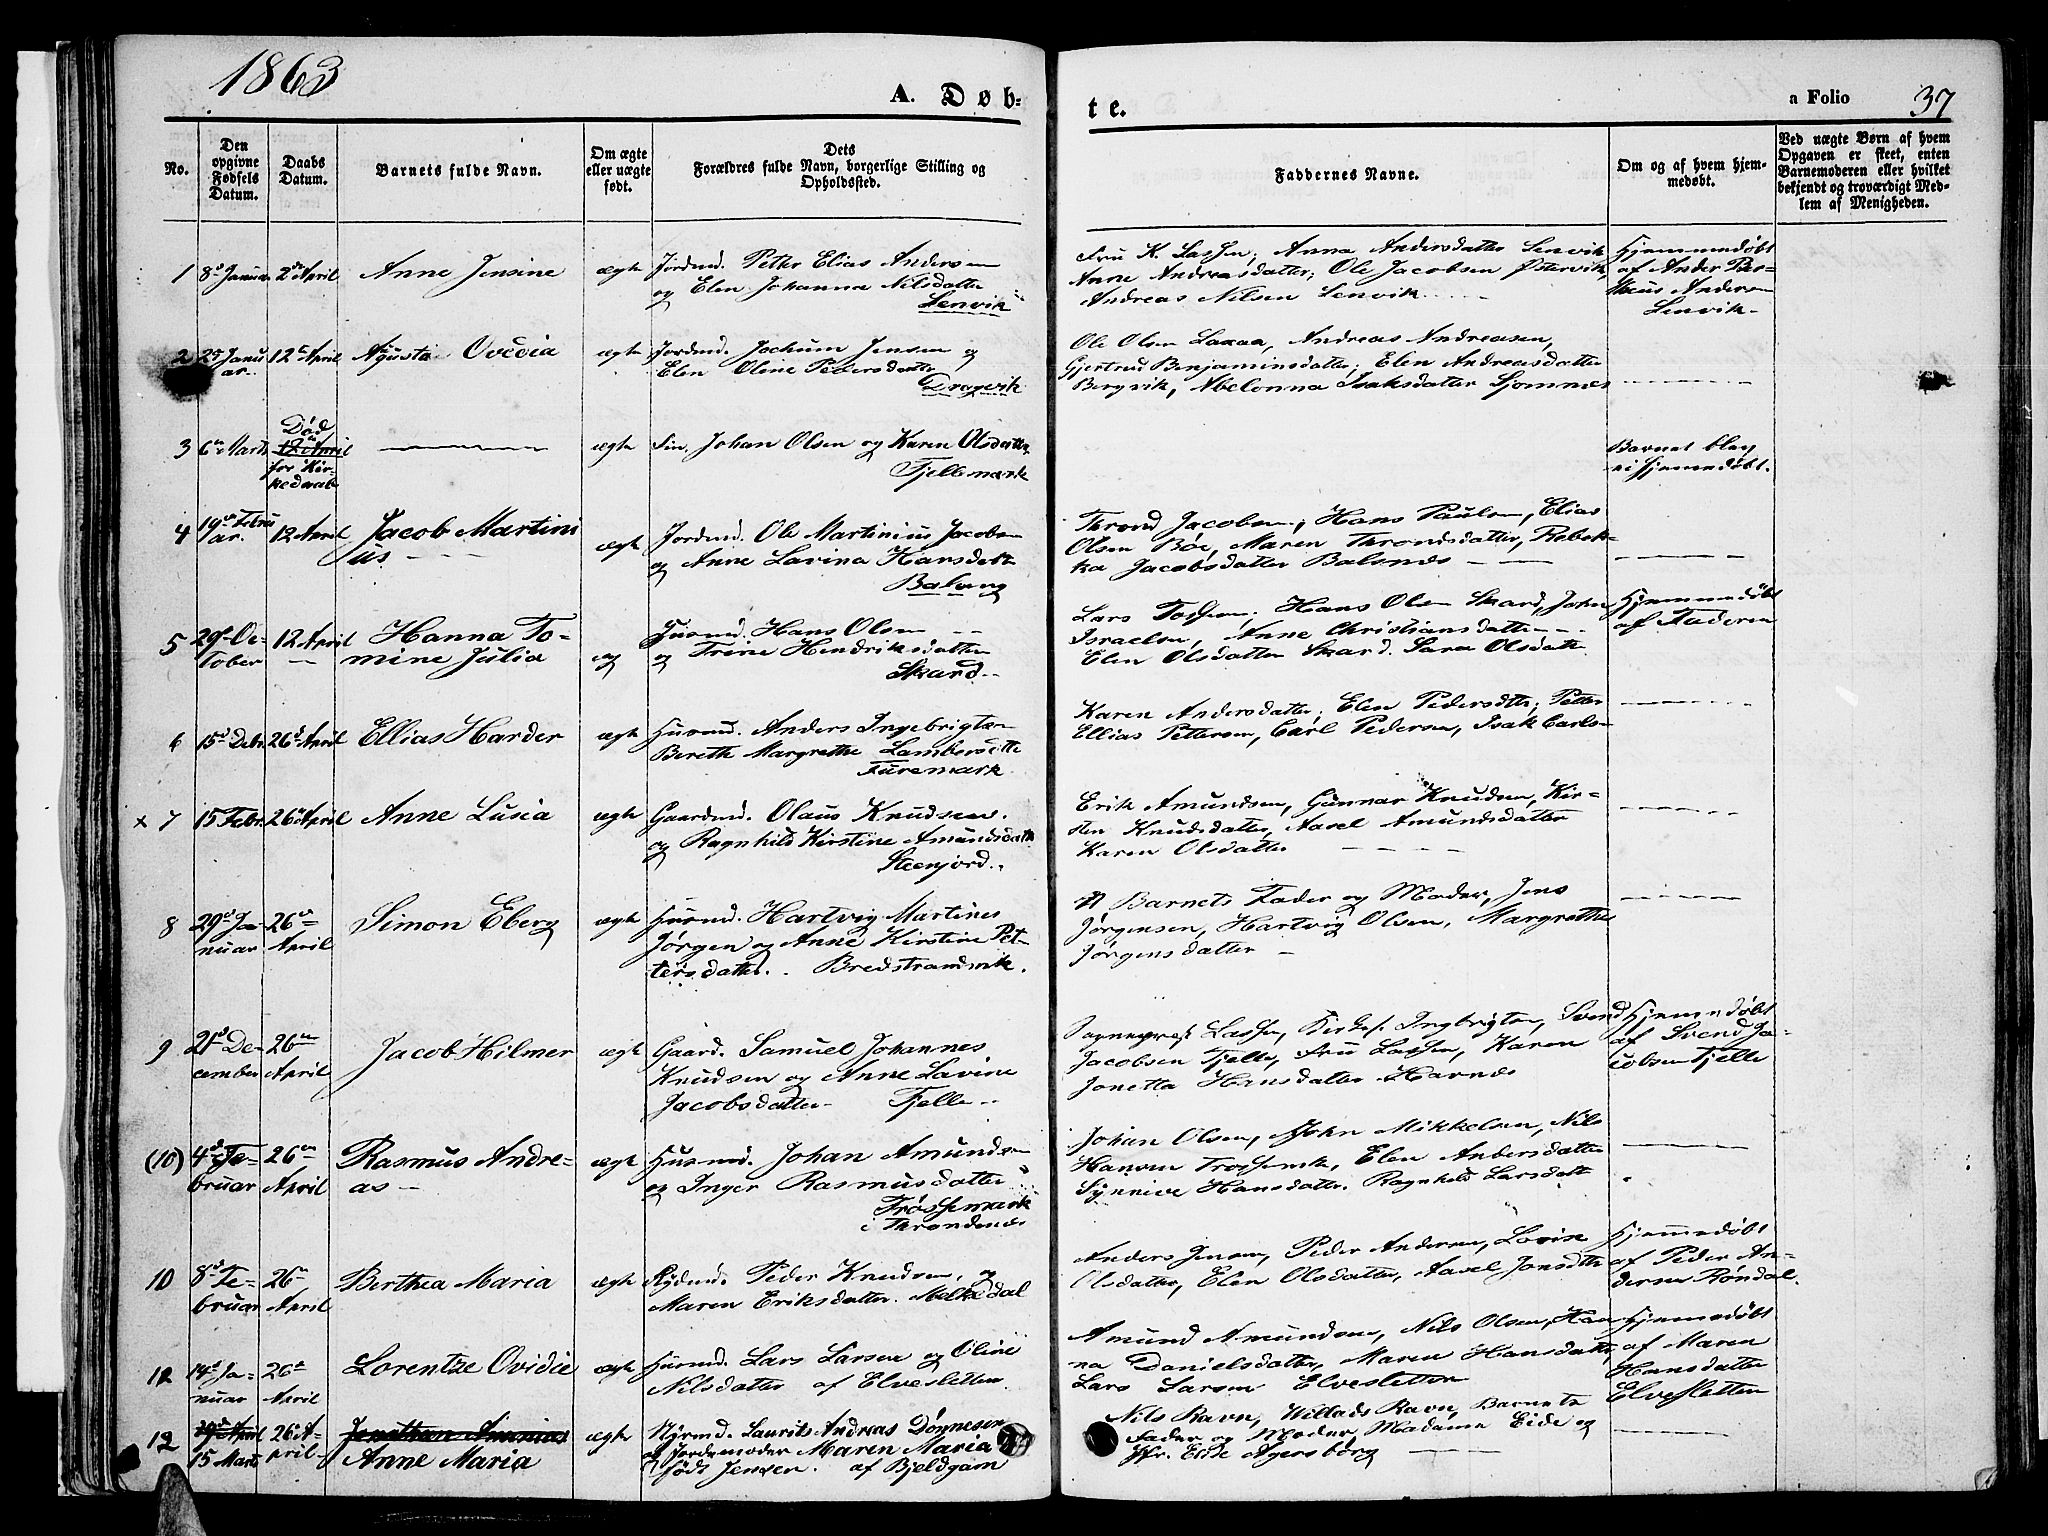 1863
A. Døb-
te.
a Folio 37
No.
Den
opgivne
Fødsels
Datum.
Daabs
Datum.
Barnets fulde Navn.
Om ægte
eller uægte
født.
Dets
Forældres fulde Navn, borgerlige Stilling og
Opholdssted.
Faddernes Navne.
Om og af hvem hjem-
medøbt.
Ved uægte Børn af hvem
Opgaven er skeet, enten
Barnemoderen eller hvilket
bekjendt og troværdigt Med-
lem af Menigheden.
1 8de Januar 2den April Anne Jensine ægte Jordmd. Petter Elias Andersen
og Elen Johanna Nilsdatter
Lenvik
Fru K. Lassen, Anna Andersdatter Lenvik
Anne Andreasdatter; Ole Jacobsen Østervik,
Andreas Nilsen Lenvik
Hjemmedøbt
af Ander
Andersen
Lenvik
2 Janu
ar. 12te April Agusta Ovedia ægte Jordmd. Jochum Jensen og
Elen Oline Pedersdatter
Dragvik
Ole Olsen Laxaa, Andreas Andreasen,
Gjertrud Benjaminsdatter, Elen Andreasdatter
Bergvik, Abelonna Isaksdatter Sjomnes
3 6te Marts Død
12te April
før Kir-
kedaab
ægte Johan Olsen og Karen Olsdatter
Fjellemark
Barnet blev
ei Hjemmedøbt.
4 19de Febru
ar. 12 April Jacob Martini
us ægte Jordmd. Ole Martinius Jacobsen
og Anne Lavina Hansdatter
Balvaag
Thrond Jacobsen, Hans Paulsen, Elias
Olsen Bøe, Maren Throndsdatter, Rebek-
ka Jacobsdatter Balsnes
5 29de Oc-
tober 12 April Hanna To-
mine Julia Husmd. Hans Olsen
og Trine Hendriksdatter
Skard
Lars Tossen, Hans Olsen Skard, John
Israelsen, Anne Christiansdatter
Elen Olsdatter Skard. Sara Olsdatt
Hjemmedøbt
af Faderen
6 15de Debr. 26de April Ellias Harder ægte Husmd. Anders Ingebrigtsen
Bereth Margrethe Lambersdtte
Furemark
Karen Andersdatter; Elen Pedersdtter; Petter
Ellias Pettersen, Carl Pedersen, Isak Carlsen
x 7 15 Febr. 26de April Anne Lusia ægte Gaardmd. Olaus Knudsen.
og Ragnhild Kirstine Amundsdatt
Steenjord.
Erik Amundsen, Gunnar Knudsen, Kir-
sten Knudsdatter, Aasel Amundsdatter
Karen Olsdatter
8 29de Ja-
nuar 26de
April Simon Eberg ægte Husmd. Hartvig Martines
Jørgen og Anne Kirstine Pet-
tersdatter. Bredstrandvik.
Barnets Fader og Moder, Jens
Jørgensen, Hartvig Olsen, Margrethe
Jørgensdatter
9 21de De-
cember 26de
April Jacob Hilmer ægte Gaard. Samuel Johannes
Knudsen og Anne Lavine
Jacobsdatter Fjelle
Sognepræst Lassen, Ingbrigtsen, Svend
Jacobsen Fjelle, Fru Lassen, Karen
Jonetta Hansdatter Havnes
Hjemmedøbt
af Svend Ja-
cobsen Fjelle
(10) 4de Fe-
bruar 26de
April Rasmus Andre-
as ægte Husmd. Johan Amundsen
og Inger Rasmusdatter
Trøssemark
i Throndenes
Johan Olsen, John Mikkelsen, Nils
Hansen Trossemk, Elen Andersdatter
Synnive Hansdatter. Ragnhild Larsdatt
10 8de Fe-
bruar 26de
April Berthea Maria ægte Rydmd. Peder Knudsen, og
Maren Eriksdatter. Melkedal
Anders Jensen, Peder Andersen, Lovise
Olsdatter, Elen Olsdatter, Aasel Jonsdtter
Hjemmedøbt
af Peder An-
dersen Røndal.
12 14de Ja-
nuar 26de
April Lorentze Ovidie ægte Husmd. Lars Larsen og Oline
Nilsdatter af Elvesletten.
Amund Amundsen, Nils Olsen, Han
na Danielsdatter, Maren Hansdatt,
Lars Larsen Elvesletten
Hjemmedøbt
af Maren
Hansdatter
Elvesletten
12 19de April
15 Marts 26de A-
pril Jonathan Ananias
Anne Maria ægte Laurits Andreas Dønnesen
og Jordemoder Maren Maria
født Jensen. af Bjeldgam
Nils Ravn, Willads Ravn, Barnets
Fader og Moder, Madame Eide og
Jfr. Elise Agersborg